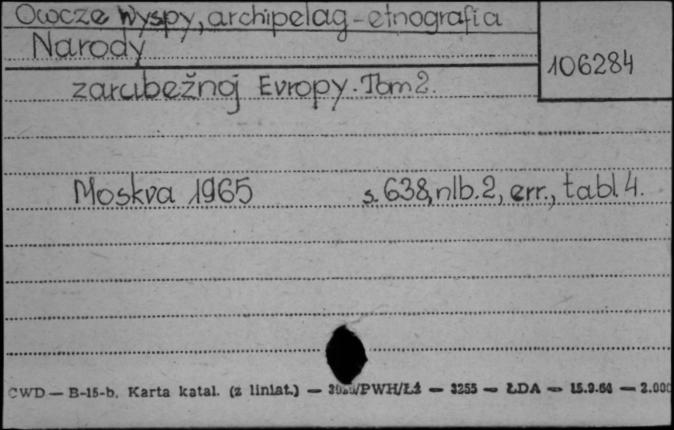 Owcze Wyspy, archipelag - etnografia
Narody
106284
zarubežnoj Evropy. Tom 2.
Moskva 1965 s. 638, nlb. 2, err., tabl 4.
CWD — B-15-b. Karta katal. (z liniat.) — /PWH/Ł1 — 3255 — ŁDA — 15.9.64 — 2.000